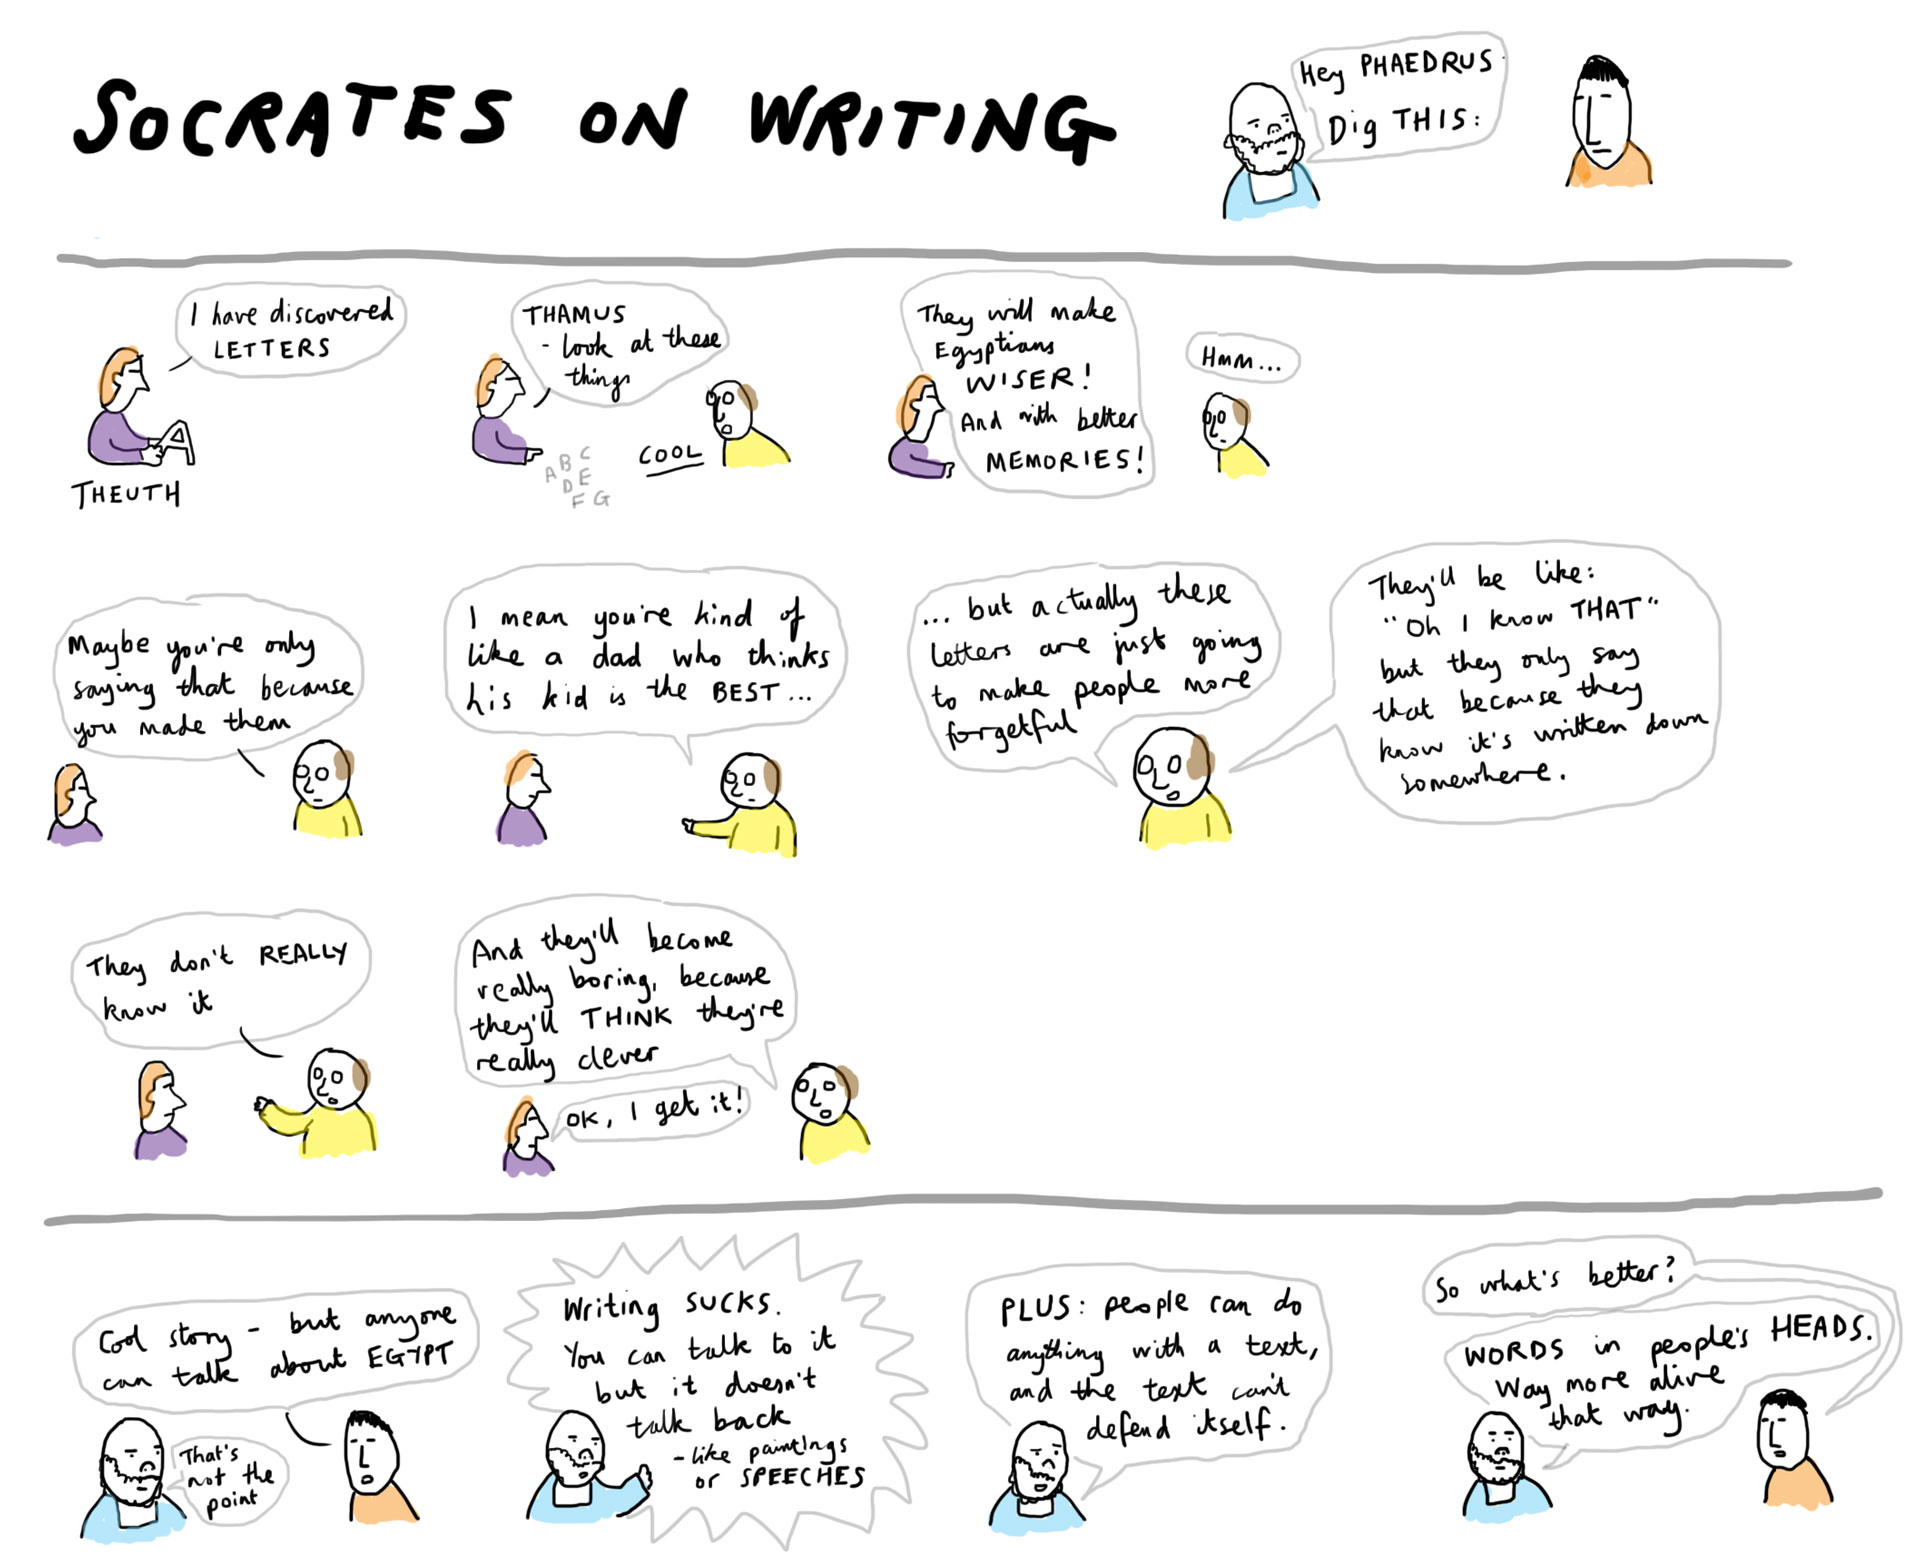 SOCRATES ON WRITING
Hey PHAEDRUS
Dig THIS:
I have discovered
LETTERS
THEUTH
THAMUS
- look at these
things
A B C
D E
F G
COOL
They will make
Egyptians
WISER!
And with better
MEMORIES!
Hmm...
Maybe you're only
saying that because
you made them
I mean you're kind of
like a dad who thinks
his kid is the BEST...
... but actually these
letters are just going
to make people more
forgetful
They'll be like:
"Oh I know THAT"
but they only say
that because they
know it's written down
somewhere.
They don't REALLY
know it
And they'll become
really boring, because
they'll THINK they're
really clever
OK, I get it!
Cool story - but anyone
can talk about EGYPT
That's
not the
point
Writing SUCKS.
You can talk to it
but it doesn't
talk back
- like paintings
or SPEECHES
PLUS: people can do
anything with a text,
and the text can't
defend itself.
So what's better?
WORDS in people's HEADS.
Way more alive
that way.